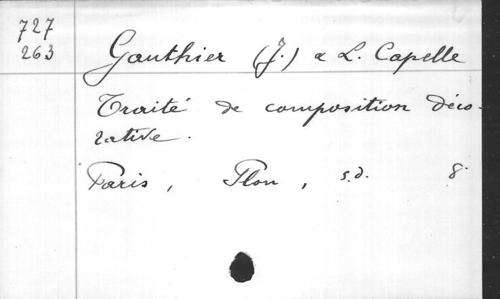 727
263
Gauthier (J.) & L. Capelle
Traité de composition déco-
rative.
Paris, Plon, s.d. 8°